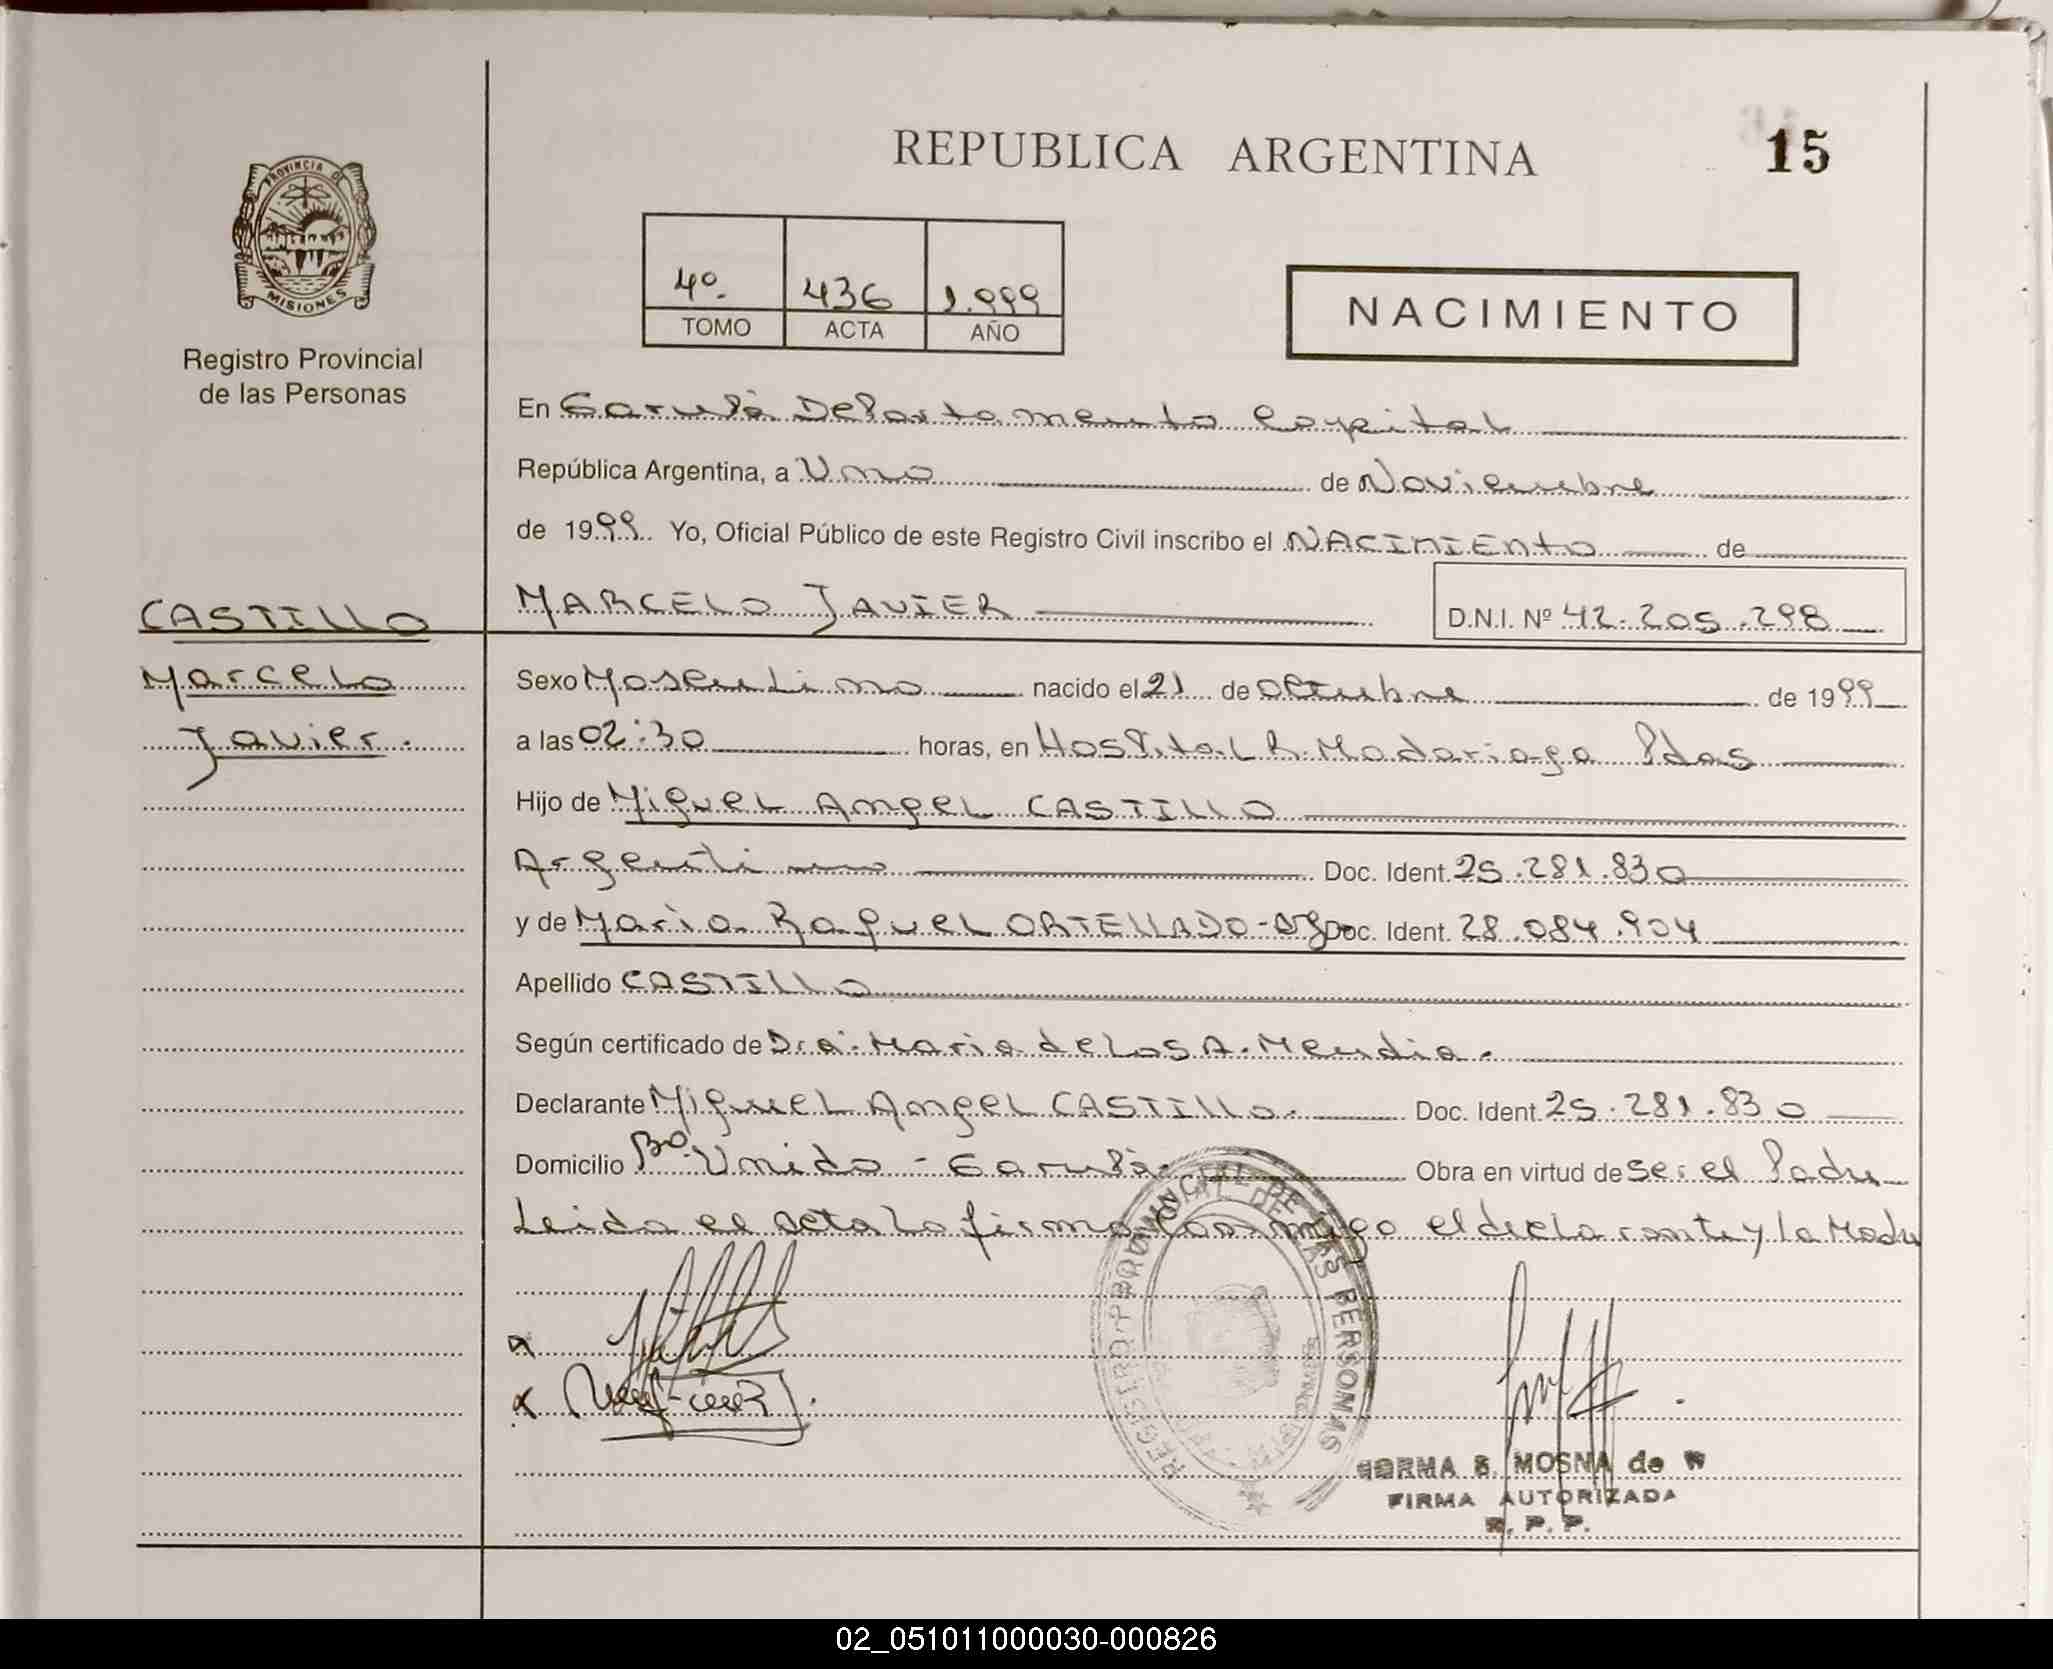 REPUBLICA ARGENTINA
15
PROVINCIA DE
MISIONES
Registro Provincial
de las Personas
4º 436 1.999
TOMO ACTA AÑO
NACIMIENTO
En Garupá Departamento Capital
República Argentina, a Uno de Noviembre
de 1999. Yo, Oficial Público de este Registro Civil inscribo el NACIMIENTO de
CASTILLO
Marcelo
Javier.
MARCELO JAVIER D.N.I. Nº 42.205.298
Sexo Masculino nacido el 21 de octubre de 1999
a las 02:30 horas, en Hospital R. Madariaga Pdas
Hijo de Miguel Angel CASTILLO
Argentino Doc. Ident. 25.281.830
y de Maria Raquel ORTELLADO - Doc. Ident. 28.084.904
Apellido CASTILLO
Según certificado de Dra. Maria de los A. Mendia.
Declarante Miguel Angel CASTILLO. Doc. Ident. 25.281.830
Domicilio Bº Unido - Garupá Obra en virtud de ser el Padre
Leida el acta la firma conmigo el declarante y la Madre
REGISTRO PROVINCIAL DE LAS PERSONAS
MOSNA de W
FIRMA AUTORIZADA
R. P. P.
02_051011000030-000826